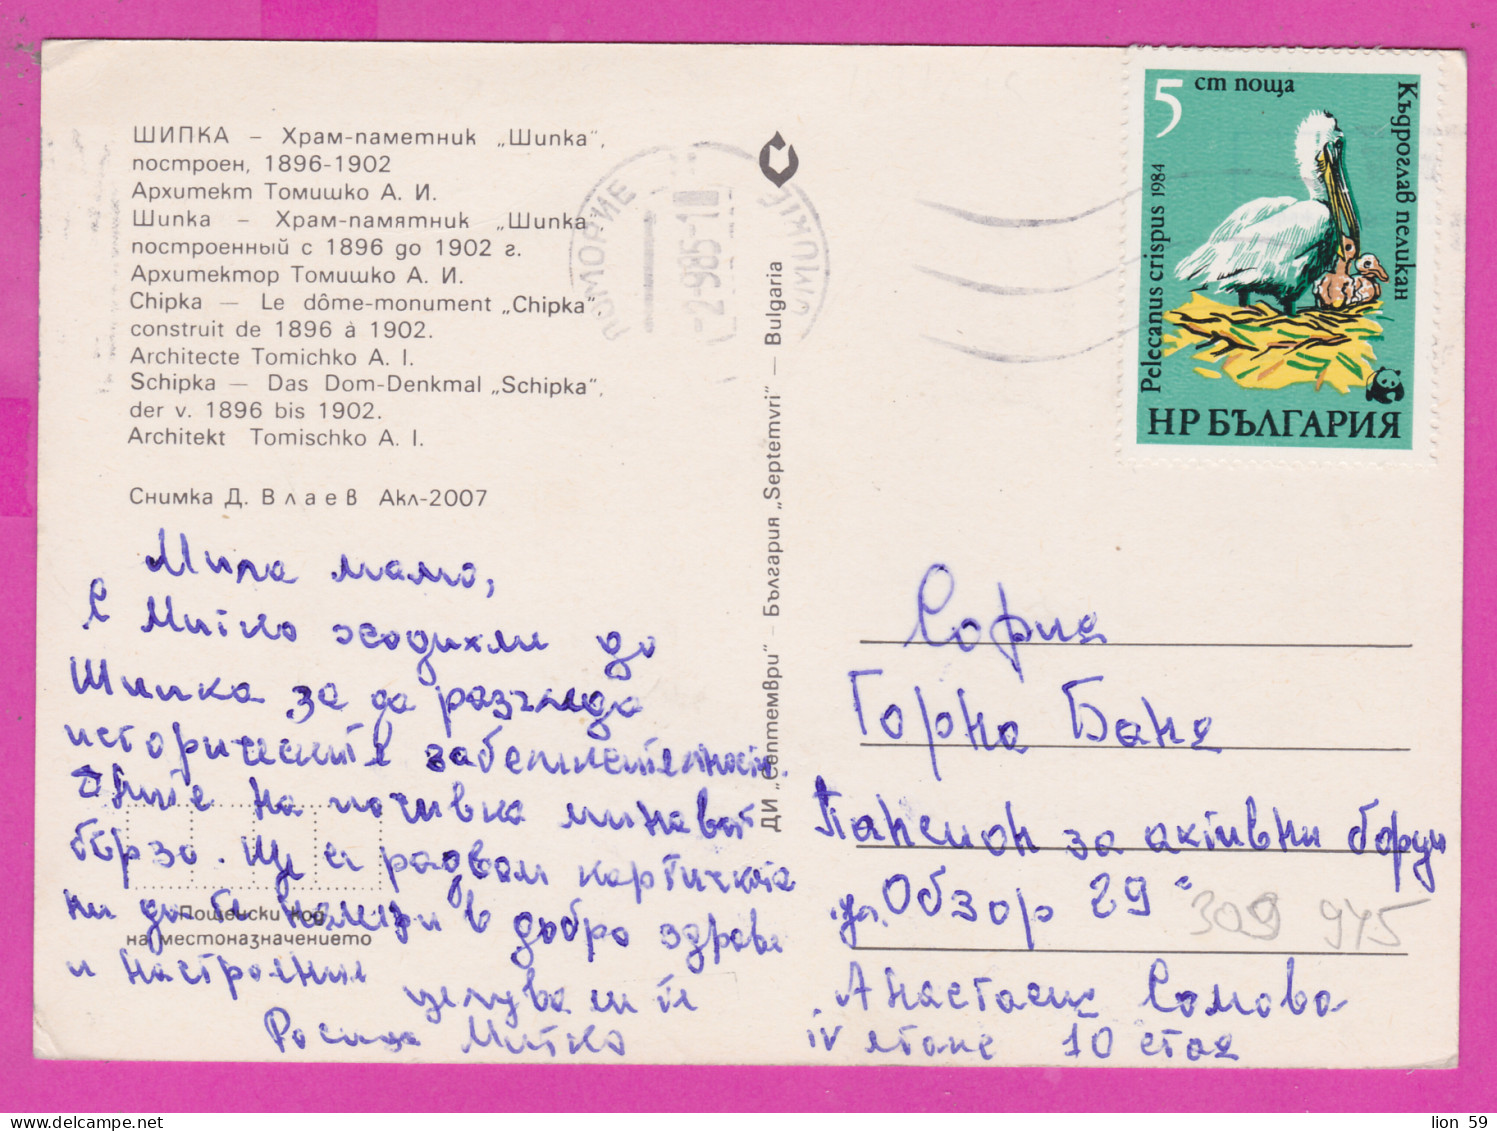 ШИПКА – Храм-паметник „Шипка",
построен, 1896-1902
Архитект Томишко А. И.
Шипка – Храм-памятник „Шипка",
построенный с 1896 до 1902 г.
Архитектор Томишко А. И.
Chipka — Le dôme-monument „Chipka",
construit de 1896 à 1902.
Architecte Tomichko A. I.
Schipka — Das Dom-Denkmal „Schipka",
der v. 1896 bis 1902.
Architekt Tomischko A. I.
Снимка Д. Влаев Акл-2007
Мила мамо,
С Митко ходихме до
Шипка за да разгледа
историческите забележителности.
Дните на почивка минават
бързо. Ще се радвам картичката
ни да те намери в добро здраве
и настроение
целуваме те
Росица Митко
Пощенски код
на местоназначението
ДИ „Септември" – България „Septemvri" – Bulgaria
ПОМОРИЕ
-2.9.85-1
5 ст поща
Къдроглав пеликан
Pelecanus crispus 1984
НР БЪЛГАРИЯ
София
Горна Баня
Пансион за активни борци
ул. Обзор 29
309 945
Анастасия Сомова
IV етаж 10 стая
lion 59